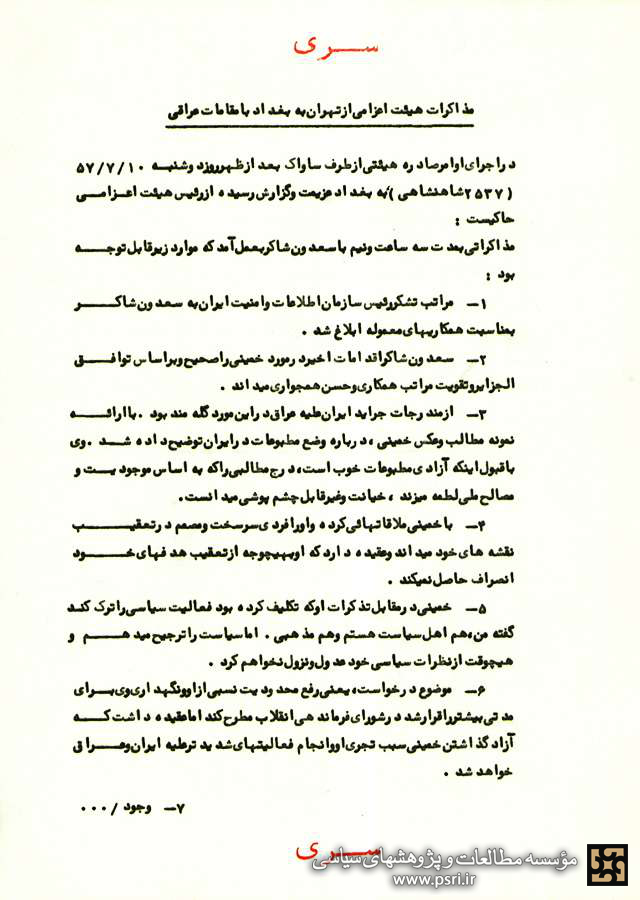 سری
مذاکرات هیئت اعزامی از تهران به بغداد با مقامات عراقی
در اجرای اوامر صادره هیئتی از طرف ساواک بعد از ظهر روز دوشنبه ۵۷/۷/۱۰
(۲۵۳۷ شاهنشاهی) به بغداد عزیمت و گزارش رسیده از رئیس هیئت اعزامی
حاکیست :
مذاکراتی بمدت سه ساعت ونیم با سعدون شاکر بعمل آمد که موارد زیر قابل توجه
بود :
۱- مراتب تشکر رئیس سازمان اطلاعات و امنیت ایران به سعدون شاکر
بمناسبت همکاریهای معموله ابلاغ شد .
۲- سعدون شاکر اقدامات اخیر در مورد خمینی را صحیح و بر اساس توافق
الجزایر و تقویت مراتب همکاری و حسن همجواری میداند .
۳- از مندرجات جراید ایران علیه عراق در این مورد گله مند بود . با ارائه
نمونه مطالب وعکس خمینی ، درباره وضع مطبوعات در ایران توضیح داده شد . وی
با قبول اینکه آزادی مطبوعات خوب است، درج مطالبی را که به اساس موجودیت و
مصالح ملی لطمه میزند ، خیانت وغیر قابل چشم پوشی میدانست.
۴- با خمینی ملاقاتهائی کرده و او را فردی سرسخت ومصمم در تعقیب
نقشه های خود میداند وعقیده دارد که او بهیچوجه از تعقیب هدفهای خود
انصراف حاصل نمیکند .
۵- خمینی در مقابل تذکرات او که تکلیف کرده بود فعالیت سیاسی را ترک کند
گفته من، هم اهل سیاست هستم وهم مذهبی . اما سیاست را ترجیح میدهم و
هیچوقت از نظرات سیاسی خود عدول ونزول نخواهم کرد .
۶- موضوع درخواست، یعنی رفع محدودیت نسبی از او ونگهداری وی برای
مدتی بیشتر را قرار شد در شورای فرماندهی انقلاب مطرح کند اما عقیده داشت که
آزاد گذاشتن خمینی سبب تجری او و انجام فعالیتهای شدیدتر علیه ایران وعراق
خواهد شد .
۷- وجود / ۰۰۰
سری
مؤسسه مطالعات و پژوهشهای سیاسی
www.psri.ir